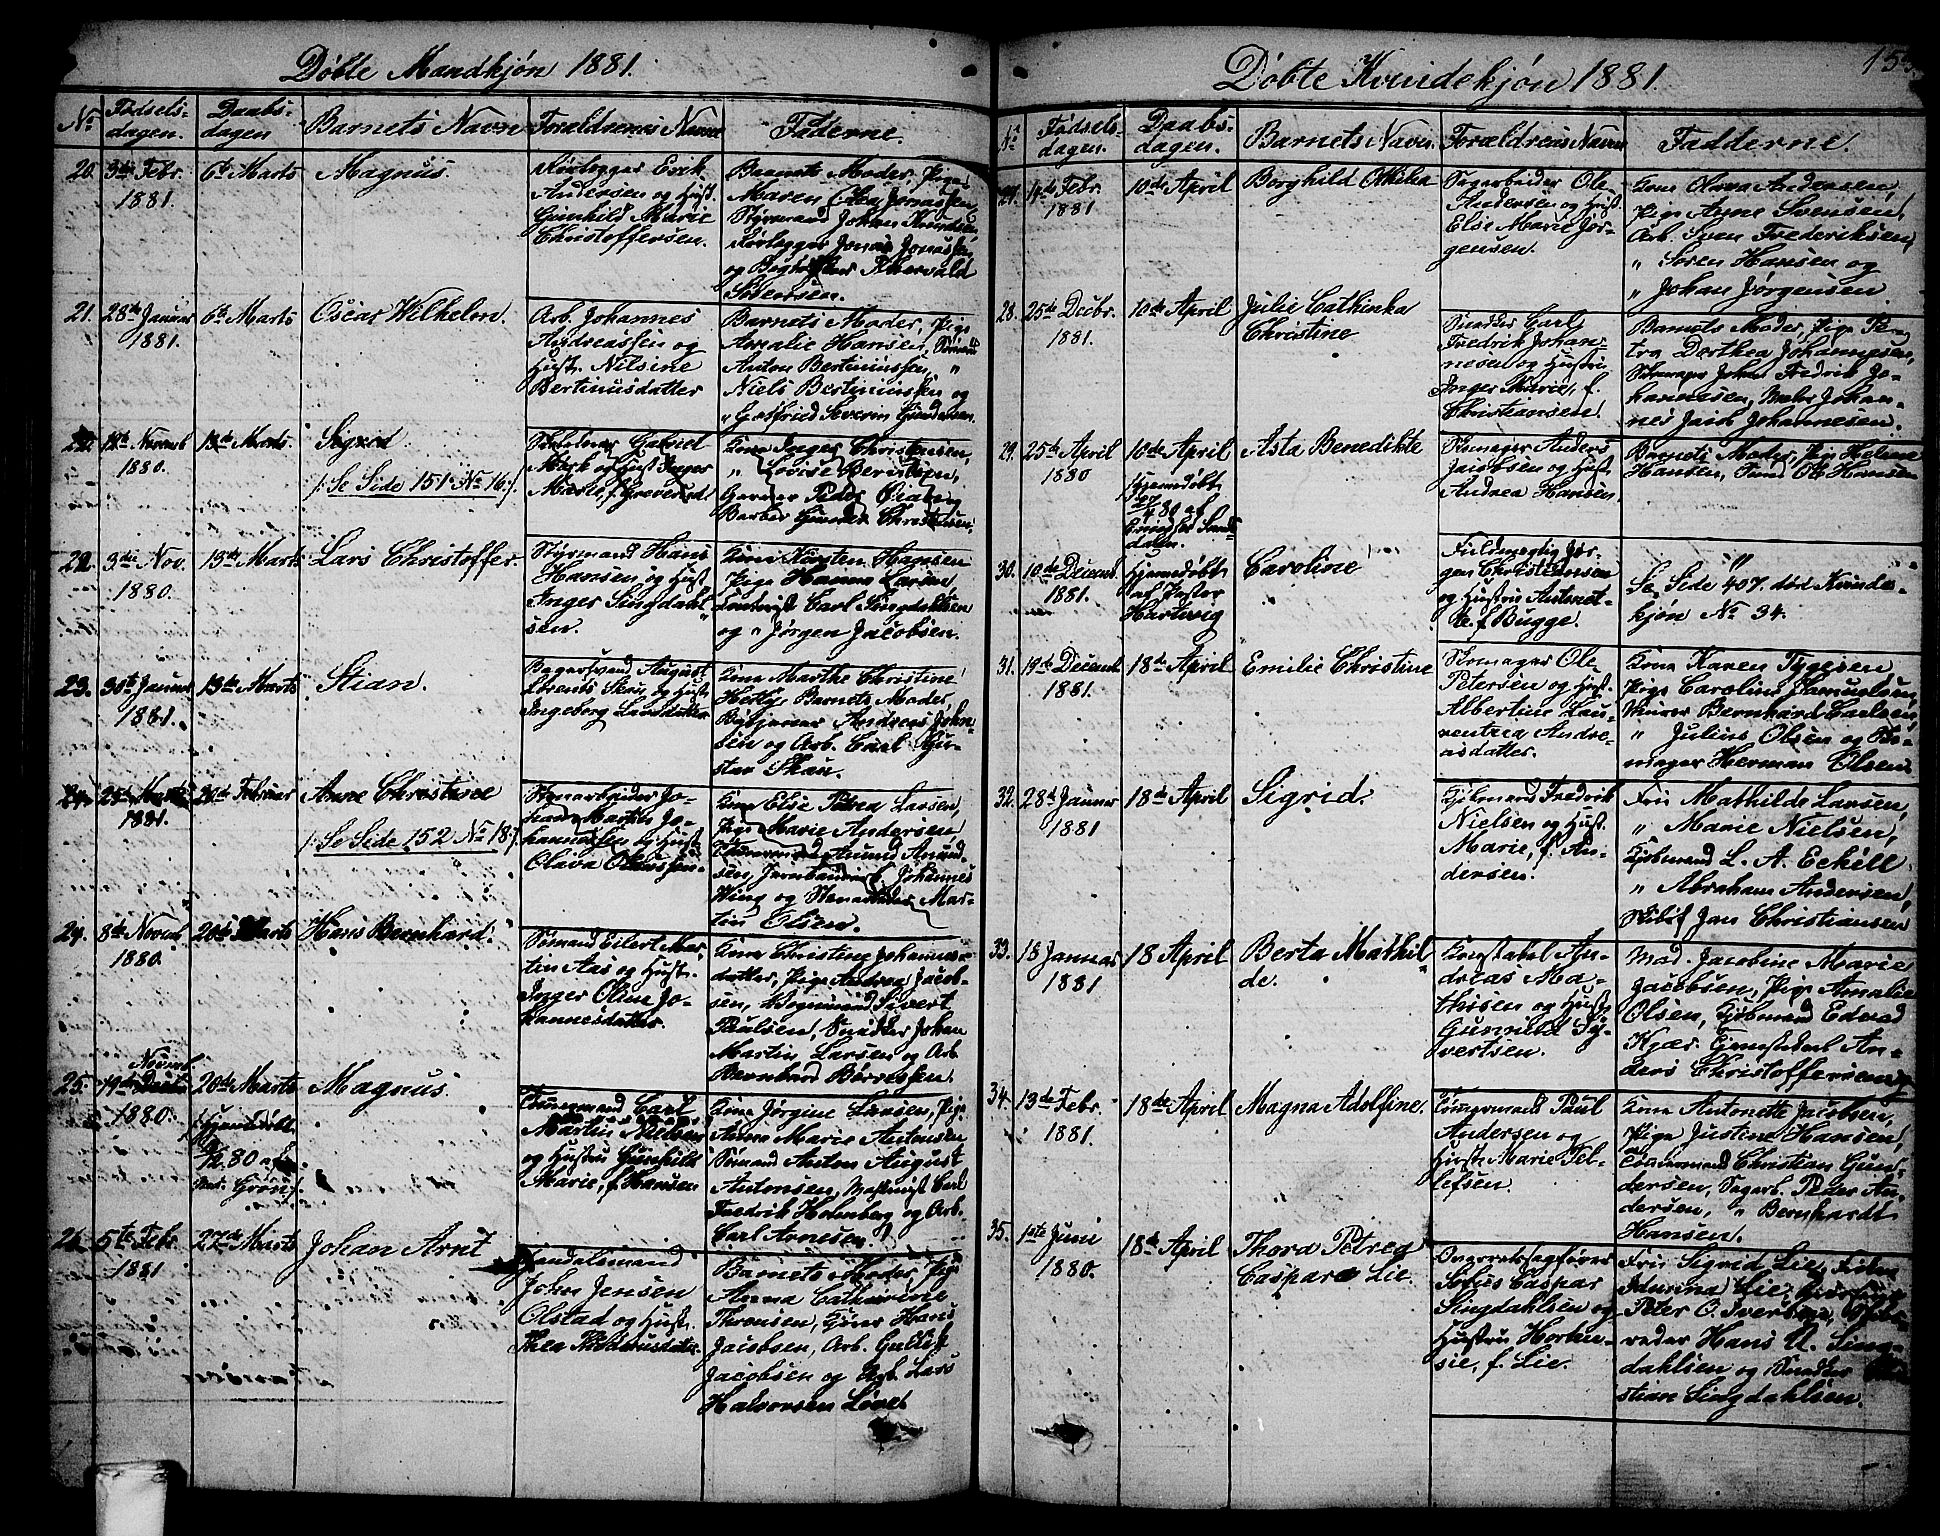 Døbte Mandkjøn 1881.
No
Fødsels-
dagen.
Daabs-
dagen
Barnets Navn
Forældrenes Navne
Faderne.
20.
3die Febr.
1881.
6te Marts
Magnus.
Rørlægger Erik
Andersen og Hust.
Gunhild Marie
Christoffersen.
Barnets Moder, Pige
Maren Jonassen,
Styrmand Johan Knudsen
Rørlægger Jonas Jonassen
og Thorvald
Sörensen.
21.
28de Januar
1881.
6te Marts
Oscar Wilhelm.
Arb. Johannes
Andreassen og
Hustr. Nilsine
Bertinusdatter
Barnets Moder, Pige
Amalie Hansen,
Anton Bertiniussen, "
Niels Bertiniussen og
" Gotfried Severin Gundersen.
22.
18de Novemb
1880.
13de Marts.
Sigvod
/: Se Side 151 No 16 :/
Gabriel
Mørk og Hust. Inger
Marie, f. Greverud
Kone Inger Christensen,
" Lovise Berntsen,
Garver Peder Olsen og
Barber Gunder Christensen.
22.
3die Nov.
1880.
13de Marts
Lars Christoffer.
Styrmand Hans
Hansen og Hust.
Inger Singdahl-
sen.
Kone Karsten Hansen
Pige Hanna Larsen
Carl Singdahlsen
og " Jørgen Jacobsen.
23.
30te Januar
1881.
13de Marts
Stian.
Bagersvend August
Lorents Skris og Hust.
Ingeborg Larsdatter
Kone Marthe Christine
Hertly, Barnets Moder,
Andreas John-
sen og Arb. Carl Gu-
stav Skau.
24.
25de Marts
1881.
20de Februar
Anne Christine
/: Se Side 152 No 18 :/
Stenarbeider Jo-
han Martin Jo-
hannessen og Hust.
Olava Olaussen.
Kone Else Petra Larsen,
Pige Marie Andersen,
Amund Amund-
sen, Jernbanearb. Johannes
Wing og Stenarbeider Mar-
tin Olsen.
24.
8de Novemb
1880.
20de Marts
Hans Bernhard.
Sømand Eilert Mar-
tin Aas og Hustr.
Inger Oline Jo-
hannesdatter.
Kone Christine Johannes-
datter, Pige Andrea Jacob-
sen, Vognmand Sivert
Paulsen, Snedker Johan
Martin Larsen og Arb.
Bernhard Børresen.
25.
Novemb.
19de Decbr
1880.
20de Marts
Hjemmedøbt
/12.80 af
Grøn.
Magnus.
Tømmermand Carl
Martin Nielsen
og Hustru Gunhild
Marie, f. Hansen
Kone Jørgine Larsen, Pige
Anna Marie Antonsen
Sømand Anton August
Antonsen, Maskinist Carl
Fredrik Holmberg og Arb.
Carl Arnesen.
26.
5te Febr
1881
27de Marts
Johan Arnt
Handelsmand
John Jensen
Olstad og Hustr.
Thea Nicolausdatter
Barnets Moder, Pige
Anna Cathrine
Thronsen, Gører Hans
Jacobsen, Arb. Gullik
Jacobsen og Arb. Lars
Halvorsen Løvet
Døbte Kvindekjøn 1881.
153.
No
Fødsels-
dagen.
Daabs-
dagen.
Barnets Navn
Forældrenes Navne
Fadderne.
27.
4de Febr.
1881
10de April
Borghild Othilia
Sagarbeider Ole
Andersen og Hust.
Else Marie Jør-
gensen.
Kone Olava Andersen,
Pige Anne Svensen,
Arb. Sven Frederiksen,
" Søren Hansen og
" Johan Jørgensen.
28.
25de Decbr.
1881.
10de April
Julie Cathinka
Christine
Snedker Carl
Fredrik Johan-
nesen og Hustru
Inger Marie, f.
Christiansen.
Barnets Moder, Pige Pe-
tra Dorthea Johannesen,
Skomager Johan Fredrik Jo-
hannesen, Johan-
nes Jacob Johannesen.
29.
25de April
1880
10de April
Hjemmedøbt
27/4 80 af
Sand-
dalen.
Asta Benedikte
Skomager Anders
Jacobsen og Hust.
Andrea Hansen.
Barnets Moder, Pige Helene
Hansen, Ole Hansen
30.
10de Decemb.
1881.
Hjemmedøbt
af Pastor
Hartwig
Caroline
Fuldmægtig Jør-
gen Christiansen
og Hustru Antonet-
te f. Bugge.
"
Se Side 407. døde Kvinde-
kjøn No 34.
31.
19de Decemb
1881.
18de April
Emilie Christine
Skomager Ole
Petersen og Hust.
Albertine Lau-
rentza Andre-
asdatter.
Kone Karen Tygesen
Pige Caroline Samuelsen,
Murer Bernhard Carlsen,
" Julius Olsen og Sko-
mager Herman Olsen
32.
28de Januar
1881
18de April
Sigrid.
Kjøbmand Fredrik
Nielsen og Hust.
Marie, f. An-
dersen.
Frk Mathilde Larsen,
" Marie Nielsen,
Kjøbmand L. A. Eckell
" Abraham Andersen,
Skibsf. Jan Christiansen
33.
18 Januar
1881
18 April
Berta Mathil
de.
Konstabel An-
dreas Ma-
thisen og Hust.
Gunnild Sy-
vertsen.
Mad. Jacobine Marie
Jacobsen, Pige Amalie
Olsen, Kjøbmand Edvard
Kjær, An-
ders Christoffersen
34.
13de Febr.
1881.
18de April
Magna Adolfine.
Tømmermand Paul
Andersen og
Hust. Marie Tel-
lefsen.
Kone Antonette Jacobsen,
Pige Justine Hansen,
Tømmermand Christian Gun-
dersen, Sagarb. Peder An-
dersen, " Bernhardt
Hansen.
35.
1ste Juni
1880.
18de April
Thora Petrea
Caspara Lie.
Overretssagfører
Sofus Caspar
Singdahlsen og
Hustru Horten-
sie, f. Lie.
Frk Sigrid Lie,
Idunna Lie,
Peter O. Iversen,
Hans U. Sing-
dahlsen og Snedker Chri-
stian Singdahlsen.